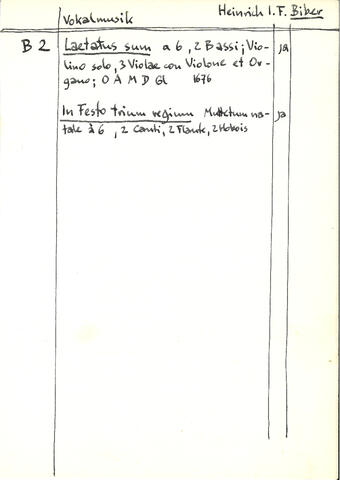 Vokalmusik Heinrich I. F. Biber
B 2 Laetatus sum a 6, 2 Bassi; Vio- ja
lino solo, 3 Violae con Violone et Or-
gano; O A M D Gl 1676
In Festo trium regium Muttetum na- ja
tale à 6, 2 Canti, 2 Flaut., 2 Hobois